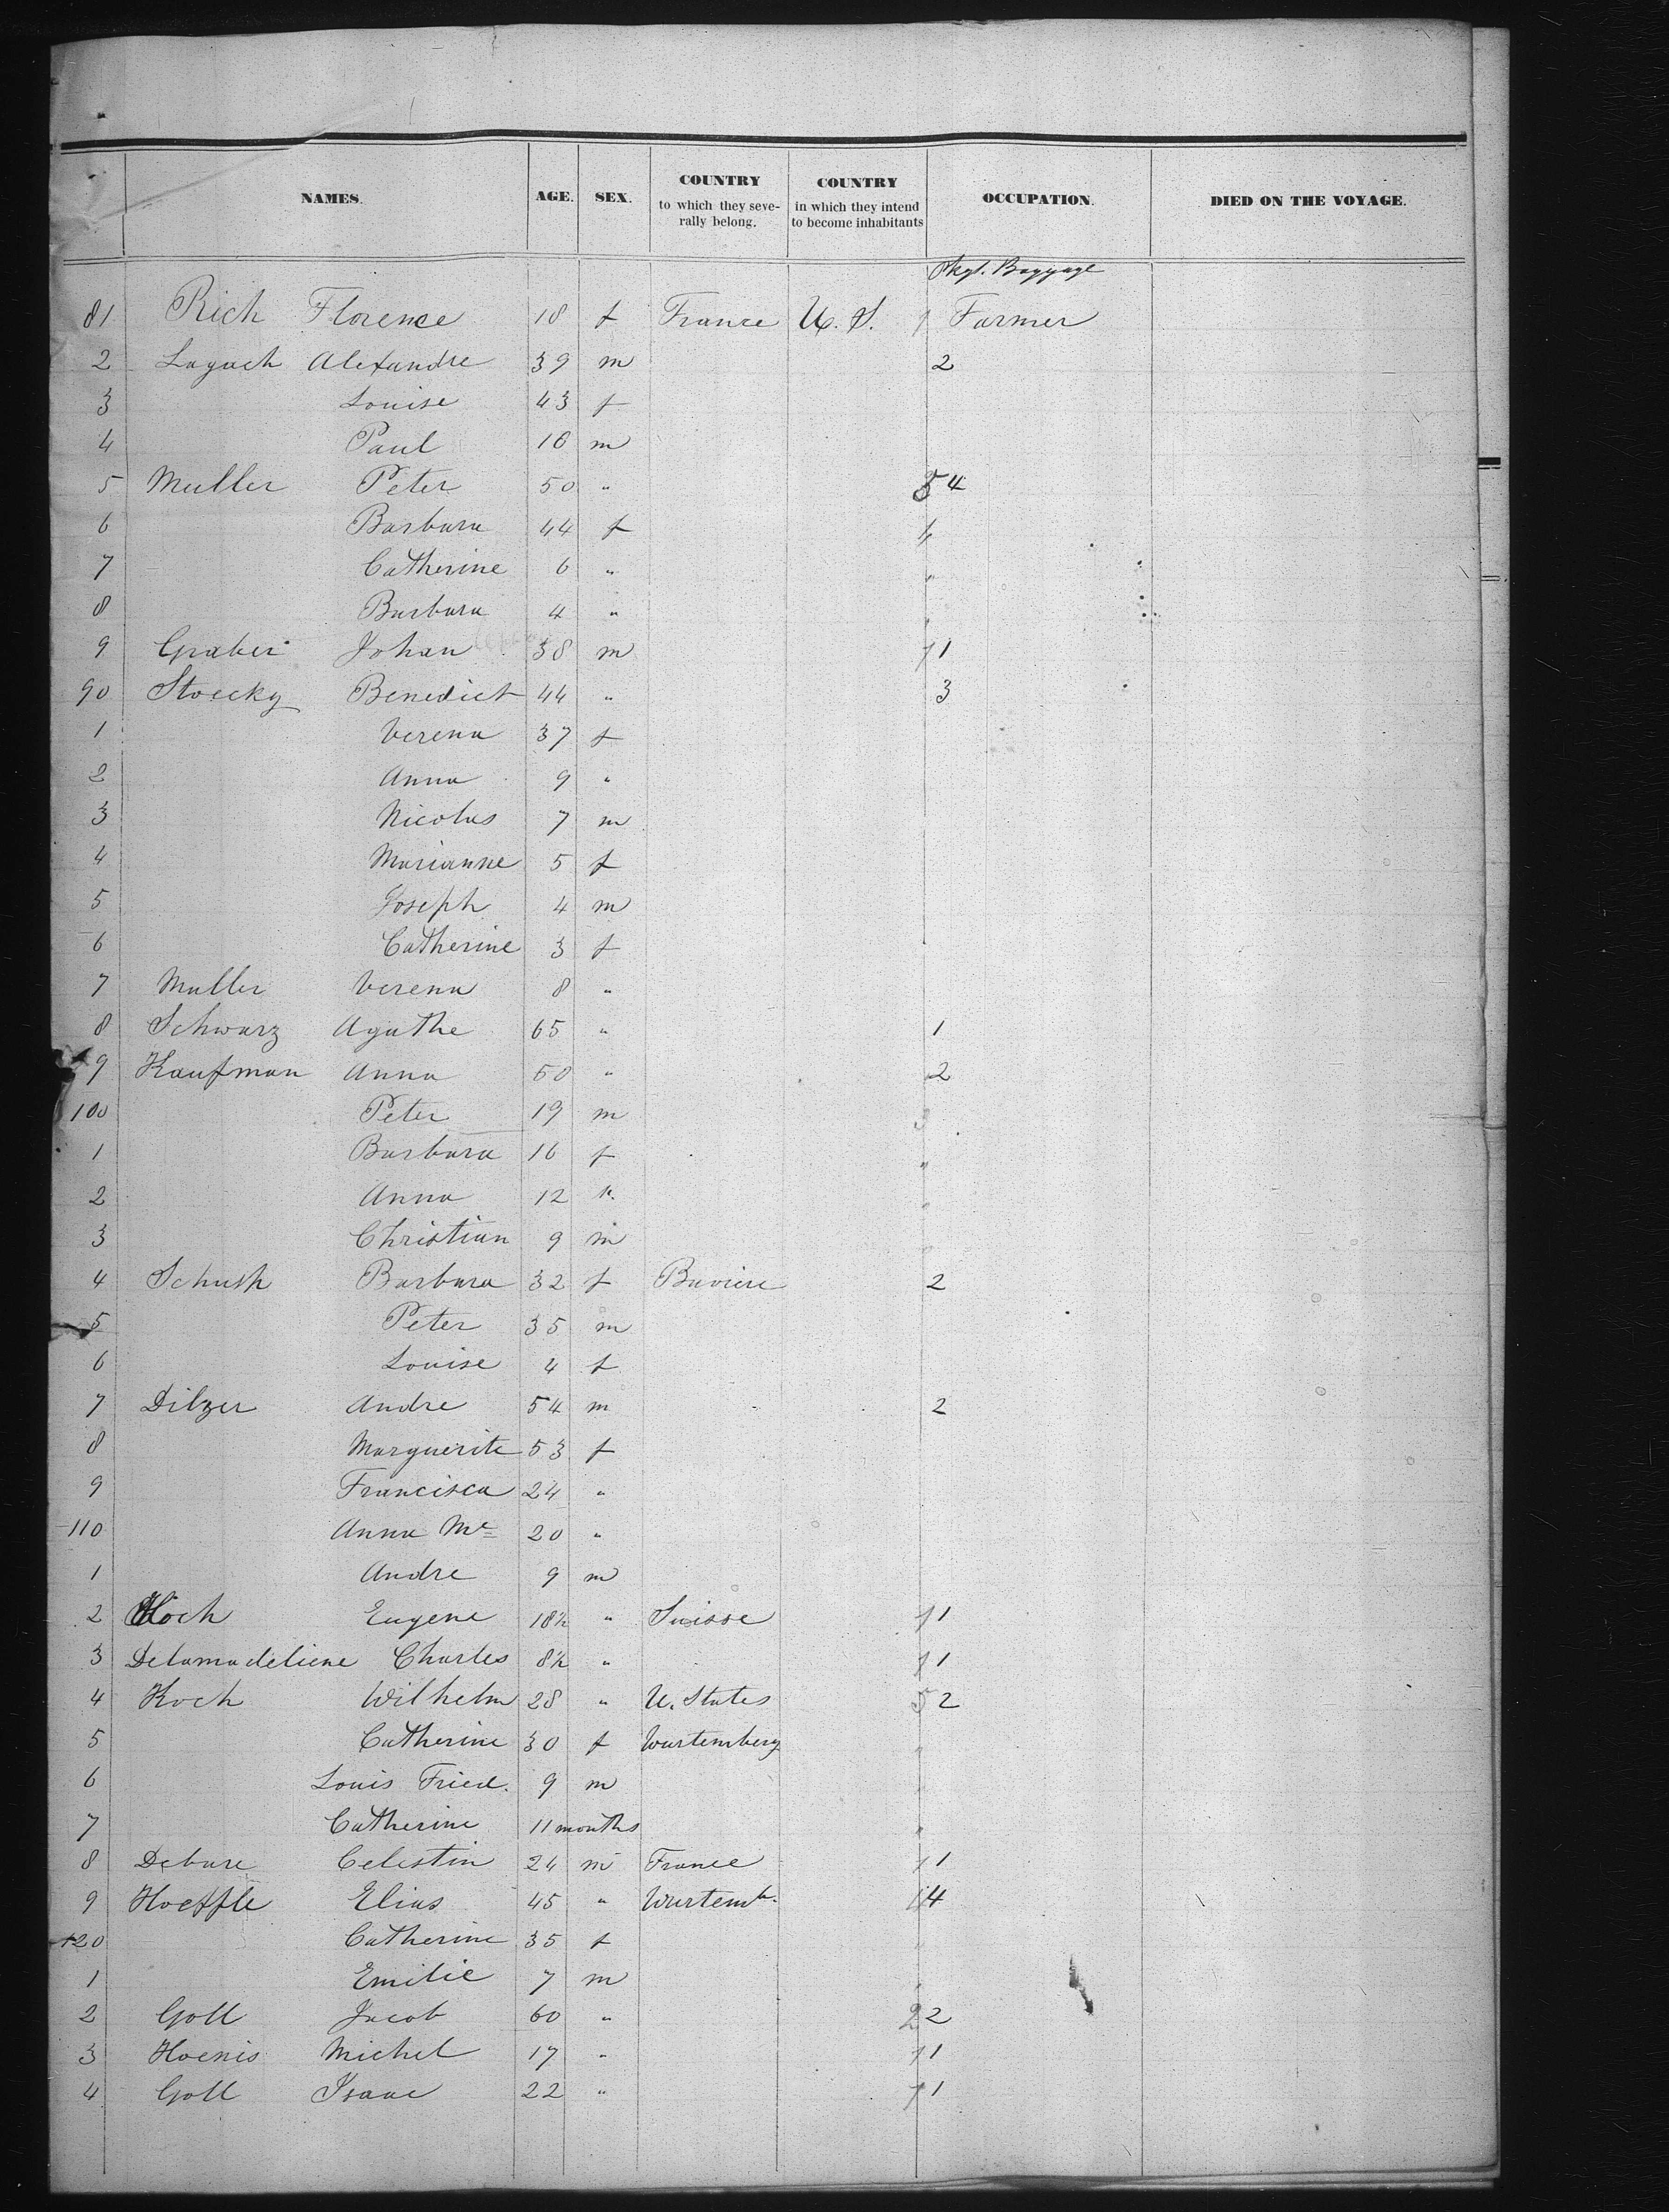 NAMES. AGE. SEX. COUNTRY to which they severally belong. COUNTRY in which they intend to become inhabitants OCCUPATION. DIED ON THE VOYAGE.
Pkgs. Baggage
81 Rich Florence 18 f France U. S. 1 Farmer
2 Lagach Alexandre 39 m 2
3 Louise 43 f
4 Paul 16 m
5 Muller Peter 50 " 4
6 Barbara 44 f
7 Catherine 6 "
8 Barbara 4 "
9 Graber Johan 38 m 1
90 Stoecky Benedict 44 " 3
1 Verena 37 f
2 Anna 9 "
3 Nicolas 7 m
4 Marianne 5 f
5 Joseph 4 m
6 Catherine 3 f
7 Muller Verena 8 "
8 Schwarz Agathe 65 " 1
9 Kaufman Anna 50 " 2
100 Peter 19 m
1 Barbara 16 f
2 Anna 12 "
3 Christian 9 m
4 Barbara 32 f Baviere 2
5 Peter 35 m
6 Louise 4 f
7 Dilzer Andre 54 m 2
8 Marguerite 53 f
9 Francisca 24 "
110 Anna Me 20 "
1 Andre 9 m
2 Hoch Eugene 18½ " Suisse 1
3 Delamadeliene Charles 8½ " 1
4 Koch Wilhelm 28 " U. States 2
5 Catherine 30 f Wurtemberg
6 Louis Fried. 9 m
7 Catherine 11 months
8 Debure Celestin 24 m France 1
9 Hoeffle Elias 45 " Wurtemb. 4
120 Catherine 35 f
1 Emilie 7 m
2 Goll Jacob 60 " 2
3 Hoenis Michel 17 " 1
4 Goll Isaac 22 " 1